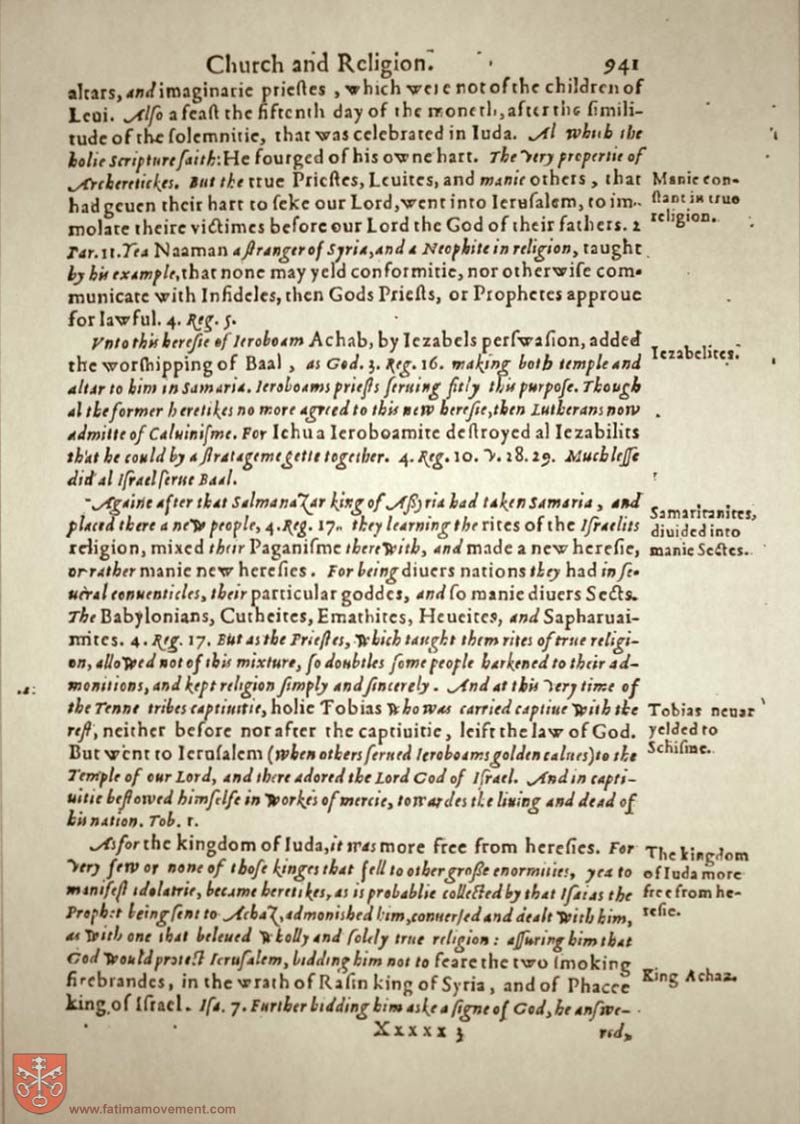 Church and Religion. 941
altars, and imaginarie priestes, which were not of the children of
Leui. Also a feast the fiftenth day of the moneth, after the simili-
tude of the solemnitie, that was celebrated in Iuda. Al which the
holie Scripture saith: He fourged of his owne hart. The very propertie of
Archeretickes. But the true Priestes, Leuites, and manie others, that
Manie con-
had geuen their hart to seke our Lord, went into Ierusalem, to im-
stant in true
molate theire victimes before our Lord the God of their fathers. 2
religion.
Par. 11. Yea Naaman a stranger of Syria, and a Neophite in religion, taught
by his example, that none may yeld conformitie, nor otherwise com-
municate with Infideles, then Gods Priests, or Prophetes approue
for lawful. 4. Reg. 5.
Vnto this heresie of Ieroboam Achab, by Iezabels perswasion, added
the worshipping of Baal, as God. 3. Reg. 16. making both temple and
Iezabelites.
altar to him in Samaria. Ieroboams priests seruing fitly this purpose. Though
al the former heretikes no more agreed to this new heresie, then Lutherans now
admitte of Caluinisme. For Iehu a Ieroboamite destroyed al Iezabilits
that he could by a stratageme gette together. 4. Reg. 10. v. 18. 29. Much lesse
did al Israel serue Baal.
Againe after that Salmanazar king of Assyria had taken Samaria, and
placed there a new people, 4. Reg. 17. they learning the rites of the Israelits
religion, mixed their Paganisme therewith, and made a new heresie,
Samaritanites,
diuided into
manie Sectes.
or rather manie new heresies. For being diuers nations they had in se-
ueral conuenticles, their particular goddes, and so manie diuers Sects.
The Babylonians, Cutheites, Emathites, Heueites, and Sapharuai-
mites. 4. Reg. 17. But as the Priestes, which taught them rites of true religi-
on, allowed not of this mixture, so doubtles some people harkened to their ad-
monitions, and kept religion simply and sincerely. And at this very time of
the Tenne tribes captiuitie, holie Tobias who was carried captiue with the
rest, neither before nor after the captiuitie, leift the law of God.
But went to Ierusalem (when others serued Ieroboams golden calues) to the
Tobias neuar
yelded to
Schisme.
Temple of our Lord, and there adored the Lord God of Israel. And in capti-
uitie bestowed himselfe in workes of mercie, towardes the liuing and dead of
his nation. Tob. 1.
As for the kingdom of Iuda, it was more free from heresies. For
very few or none of those kinges that fell to other grosse enormities, yea to
manifest idolatrie, became heretikes, as is probablie collected by that Isaias the
Prophet being sent to Achaz, admonished him, conuersed and dealt with him,
The kingdom
of Iuda more
free from he-
resie.
as with one that beleued wholly and solely true religion: assuring him that
God would protect Ierusalem, bidding him not to feare the two smoking
firebrandes, in the wrath of Rasin king of Syria, and of Phacee
King Achaz.
king of Israel. Isa. 7. Further bidding him aske a signe of God, he answe-
Xxxxx 3 red,
www.fatimamovement.com